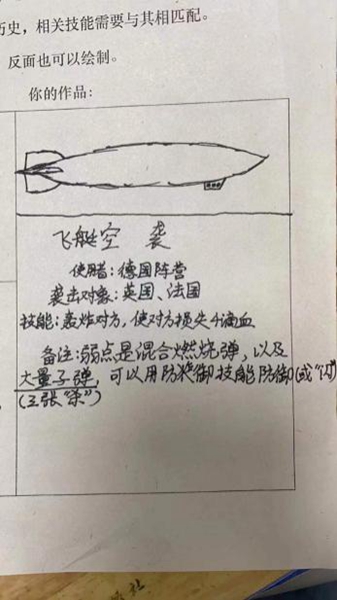 历史，相关技能需要与其相匹配。
反面也可以绘制。
你的作品：
飞艇空 袭
使用者：德国阵营
袭击对象：英国、法国
技能：轰炸对方，使对方损失4滴血
备注：弱点是混合燃烧弹，以及
大量子弹，可以用防御技能防御(或"闪")
(三张"杀")